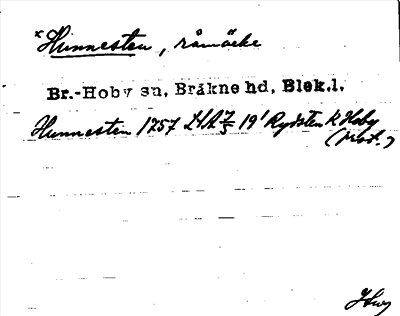 *Hunnesten, råmärke
Br.-Hoby sn, Bräkne hd, Blek.l.
Hunnesten 1757 LSA 7/5 19' Rydsten k Hoby
(Prot.)